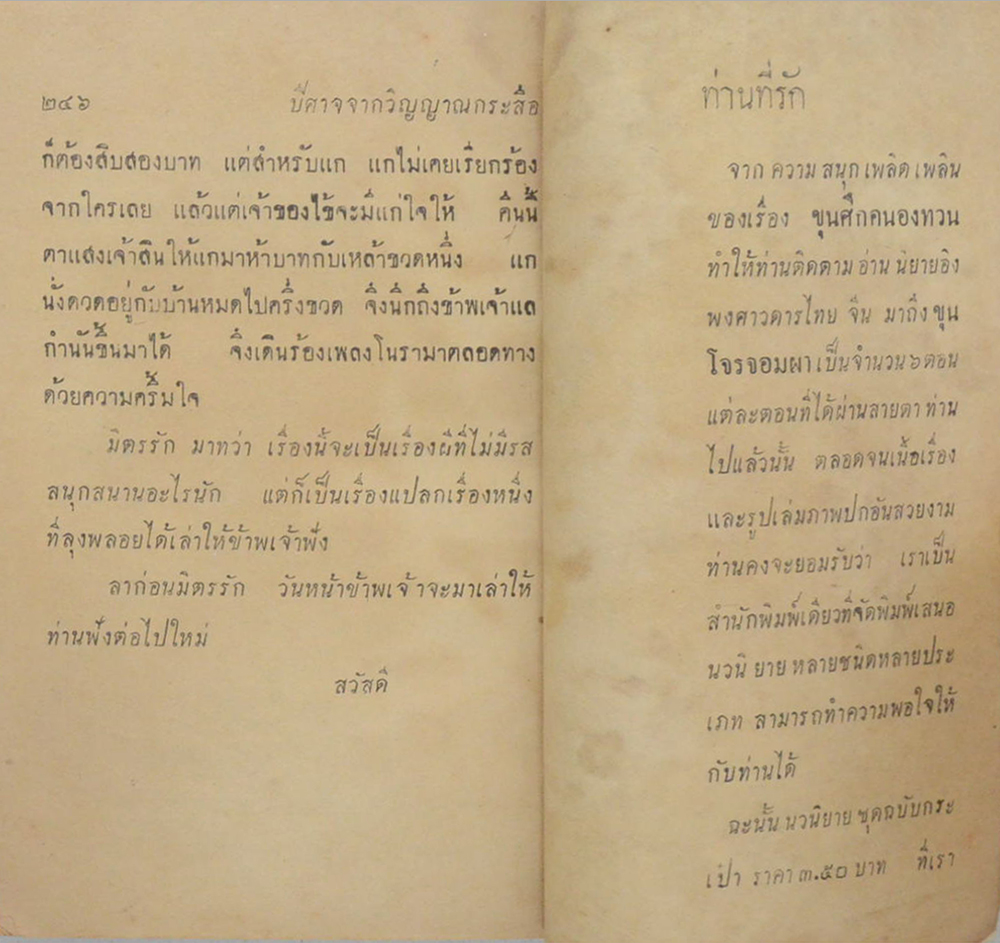 ๒๔๖ ปีศาจจากวิญญาณกระสือ
ก็ต้องสิบสองบาท แต่สำหรับแก แกไม่เคยเรียกร้อง
จากใครเลย แล้วแต่เจ้าของไข้จะมีแก่ใจให้ คืนนี้
ตาแสงเจ้าสินให้แกมาห้าบาทกับเหล้าขวดหนึ่ง แก
นั่งดวดอยู่กับบ้านหมดไปครึ่งขวด จึงนึกถึงข้าพเจ้าแล
กำนันขึ้นมาได้ จึงเดินร้องเพลงโนรามาตลอดทาง
ด้วยความครึ้มใจ
มิตรรัก มาทว่า เรื่องนี้จะเป็นเรื่องผีที่ไม่มีรส
สนุกสนานอะไรนัก แต่ก็เป็นเรื่องแปลกเรื่องหนึ่ง
ที่ลุงพลอยได้เล่าให้ข้าพเจ้าฟัง
ลาก่อนมิตรรัก วันหน้าข้าพเจ้าจะมาเล่าให้
ท่านฟังต่อไปใหม่
สวัสดี
ท่านที่รัก
จาก ความ สนุก เพลิด เพลิน
ของเรื่อง ขุนศึกคนองทวน
ทำให้ท่านติดตาม อ่าน นิยายอิง
พงศาวดารไทย จีน มาถึง ขุน
โจรจอมผา เป็นจำนวน ๖ ตอน
แต่ละตอนที่ได้ผ่านสายตา ท่าน
ไปแล้วนั้น ตลอดจนเนื้อเรื่อง
และรูปเล่มภาพปกอันสวยงาม
ท่านคงจะยอมรับว่า เราเป็น
สำนักพิมพ์เดียวที่จัดพิมพ์เสนอ
นวนิ ยาย หลายชนิดหลายประ
เภท สามารถทำความพอใจให้
กับท่านได้
ฉะนั้น นวนิยาย ชุดฉบับกระ
เป๋า ราคา ๓.๕๐ บาท ที่เรา